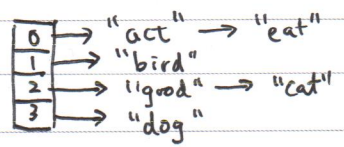 0 → "act" → "eat"
1 → "bird"
2 → "good" → "cat"
3 → "dog"